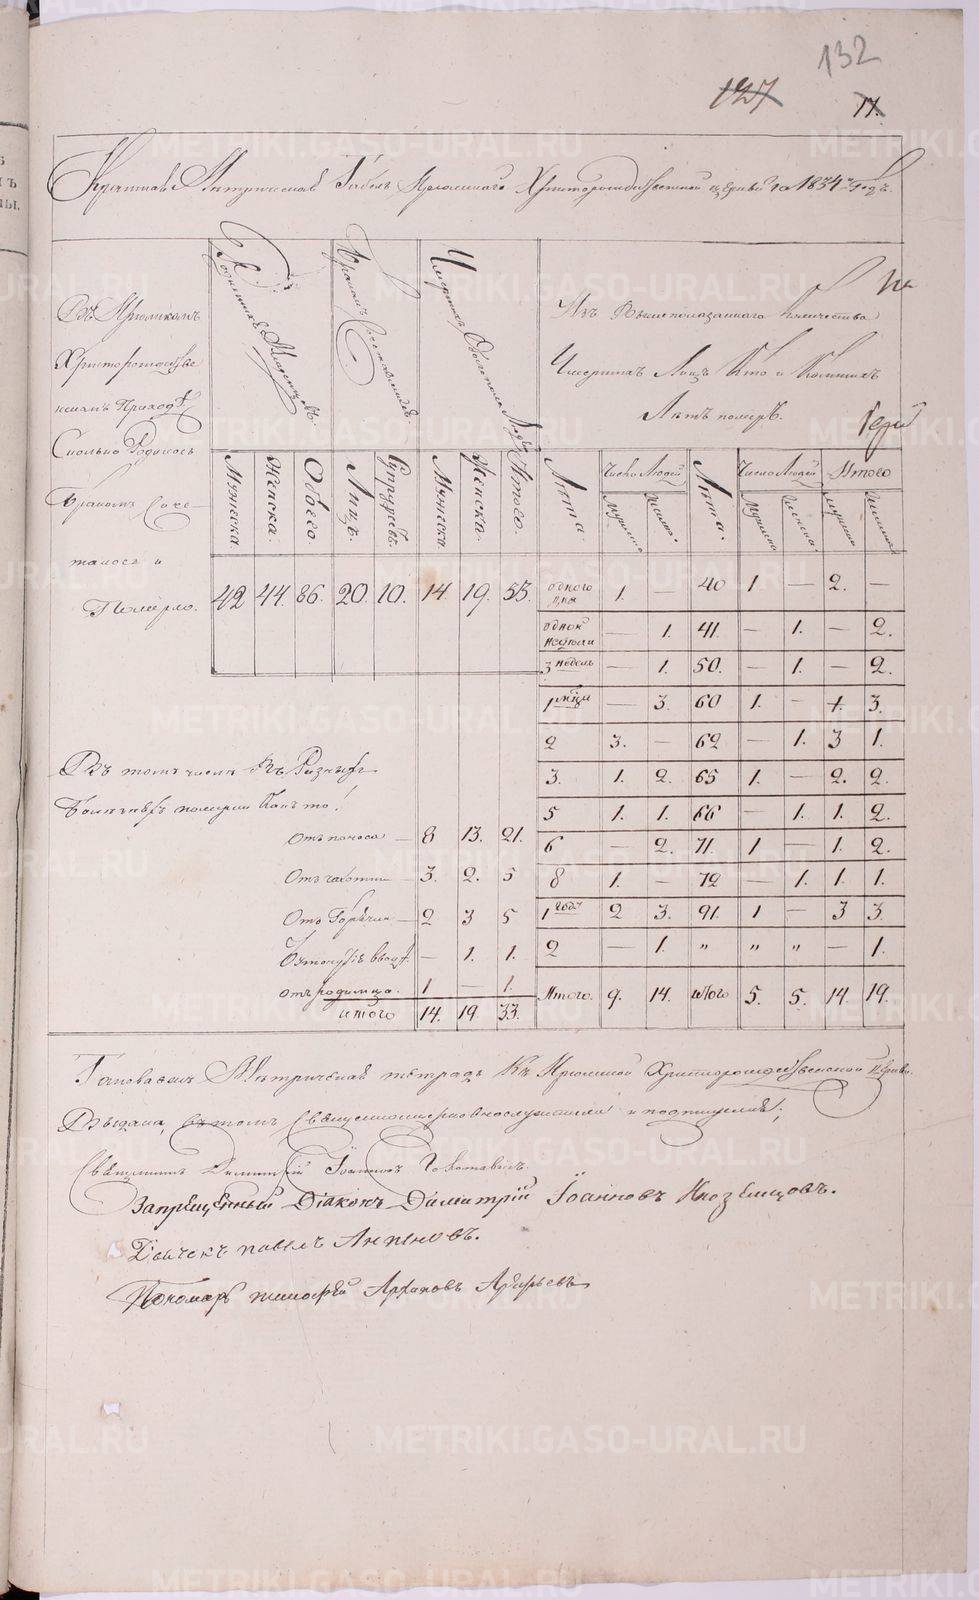 132
127
17.
Краткая Метрическая Табель Христорождественской церкви за 1834й Годъ.
Въ
Христорождестве
нскомъ Приходѣ
Сколько Родилось
Бракомъ Соче
талось и
Померло.
Родившихся Младенцовъ.
Бракомъ
Умершихъ Обоего пола Людей
Изъ Вышепоказаннаго Количества
Умершихъ Лицъ Кто и Коликихъ
Лѣтъ померъ.
Мужеска.
Женска.
Обоего.
Лицъ.
Супруговъ.
Мужеска
Женска.
Итого.
Лѣта
Число Людей
Лѣта.
Число Людей
Итого
мужеска
женска
мужеска
женска
мужеска
женска
42 44. 86. 20. 10. 14 19. 33.
одного дня 1. — 40 1 — 2. —
одной недели — 1. 41. — 1. — 2.
3 недель — 1. 50. — 1. — 2.
1 мца — 3. 60 1. — 1. 3.
2 3. — 62 — 1. 3 1.
3. 1. 2. 65 1. — 2. 2.
5 1. 1. 66 — 1. 1. 2.
6 — 2. 71. 1 — 1. 2.
8 1. — 72 — 1. 1. 1.
1 году 2 3. 91. 1 — 3 3.
2 — 1. " " " — 1.
Итого. 9. 14. итого 5. 5. 14. 19.
Въ томъ числѣ Въ Разныхъ
Болѣзняхъ померли Какъ то!
Отъ поноса — 8 13. 21.
Отъ чахотки — 3. 2. 5
Отъ Горячки — 2 3 5
— 1. 1.
отъ родимца. 1 — 1.
итого 14. 19. 33.
Метрическая тетрадь Къ Христорождественской Церкви
Выдана, въ томъ Священноцерковнослужители и подписуемся;
Священникъ Димитрій Іоанновъ
Запрещенный Діаконъ Димитрій Іоанновъ Иноземцовъ.
Дьячекъ павелъ
Пономарь тимофей
METRIKI.GASO-URAL.RU